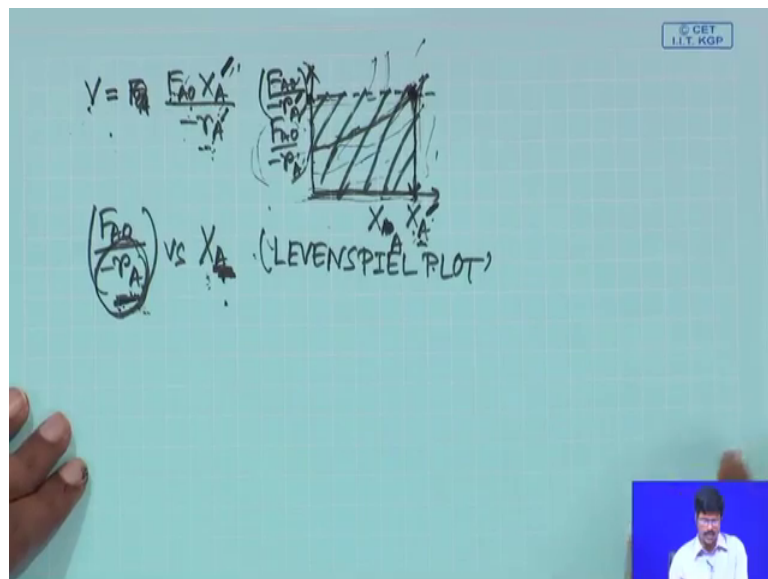 © CET
I.I.T. KGP
V = F_A0 X_A' / -r_A'
(F_A0 / -r_A')
F_A0 / -r_A
X_A X_A'
(F_A0 / -r_A) vs X_A (LEVENSPIEL PLOT)